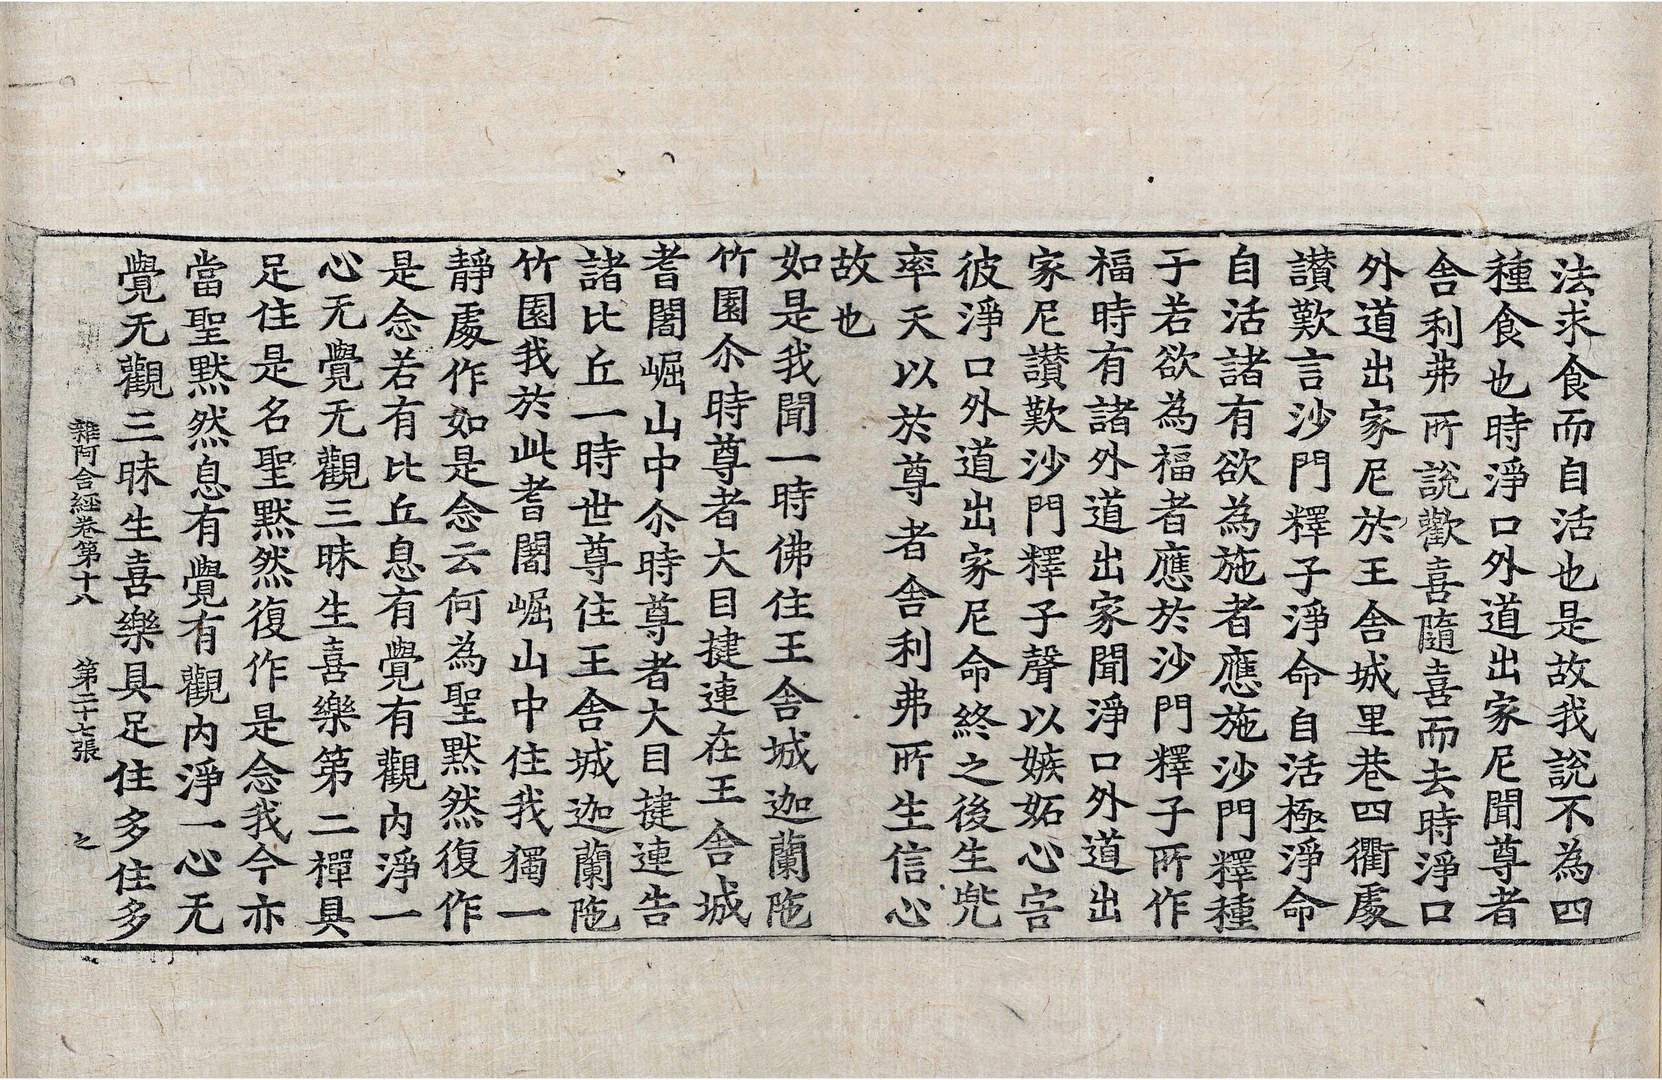 法求食而自活也是故我說不為四
種食也時淨口外道出家尼聞尊者
舍利弗所說歡喜隨喜而去時淨口
外道出家尼於王舍城里巷四衢處
讃歎言沙門釋子淨命自活極淨命
自活諸有欲為施者應施沙門釋種
子若欲為福者應於沙門釋子所作
福時有諸外道出家聞淨口外道出
家尼讃歎沙門釋子聲以嫉妬心害
彼淨口外道出家尼命終之後生兜
率天以於尊者舍利弗所生信心
故也
如是我聞一時佛住王舍城迦蘭陁
竹園尒時尊者大目揵連在王舍城
耆闍崛山中尒時尊者大目揵連告
諸比丘一時世尊住王舍城迦蘭陁
竹園我於此耆闍崛山中住我獨一
靜處作如是念云何為聖默然復作
是念若有比丘息有覺有觀內淨一
心无覺无觀三昧生喜樂第二禪具
足住是名聖默然復作是念我今亦
當聖默然息有覺有觀內淨一心无
覺无觀三昧生喜樂具足住多住多
雜阿含経卷第十八 第二十七張 之